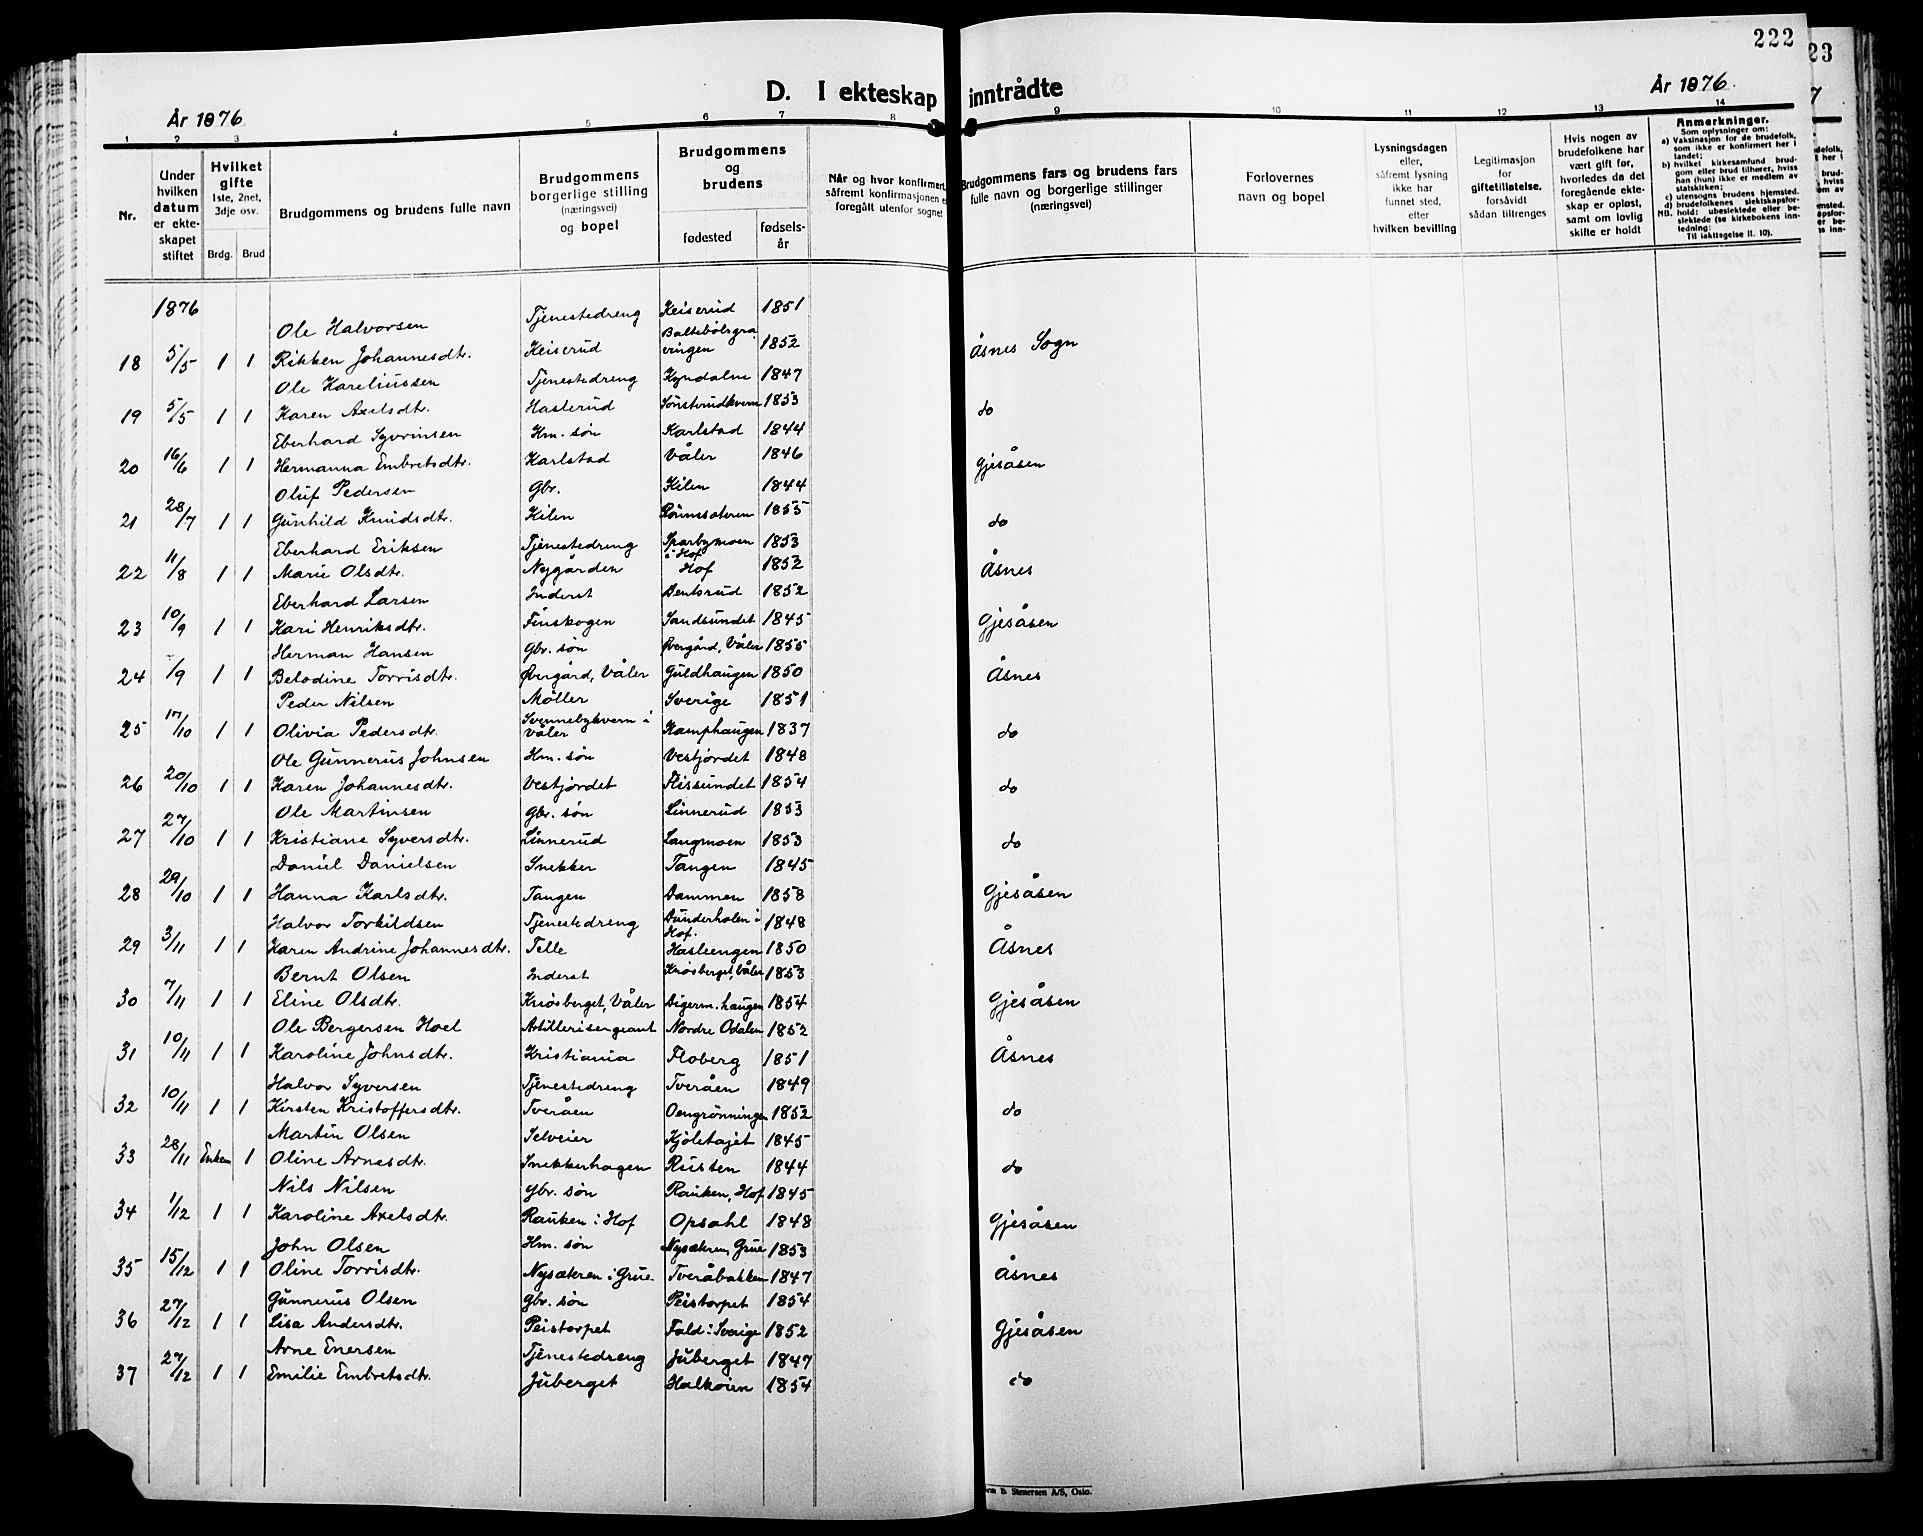 222
23
D. I ekteskap inntrådte
År 1876.
År 1876.
1 2 3 4 5 6 7 8 9 10 11 12 13 14
Nr.
Under hvilken datum er ekte-skapet stiftet
Hvilket gifte
1ste, 2net, 3dje osv.
Brdg. Brud
Brudgommens og brudens fulle navn
Brudgommens borgerlige stilling (næringsvei) og bopel
Brudgommens og brudens
fødested
fødsels-år
Når og hvor konfirmert, såfremt konfirmasjonen foregålt utenfor sognet
Brudgommens fars og brudens fars fulle navn og borgerlige stillinger (næringsvei)
Forlovernes navn og bopel
Lysningsdagen eller, såfremt lysning ikke har funnet sted, efter hvilken bevilling
Legitimasjon for giftetillatelse, forsåvidt sådan tiltrenges
Hvis nogen av brudefolkene har vært gift før, hvorledes da det foregående ekte-skap er opløst, samt om lovlig skifte er holdt
Anmerkninger.
Som oplysninger om:
a) Vaksinasjon for de brudefolk, som ikke er konfirmert her i landet;
b) hvilket kirkesamfund brudgom eller brud tilhører, hviss han (hun) ikke er medlem av statskirken;
c) utensogns brudens hjemsted.
d) brudefolkenes slektskapsfor-hold: ubeslektede eller be-slektede (se kirkebokens inn-ledning:
NB. Til iakttagelse ll. 10).
1876
Ole Halvorsen Tjenestedreng Keiserud 1851
18 5/5 1 1 Rikken Johannesdtr. Keiserud Baltebølsgraveringen 1852 Åsnes Sogn
Ole Kareliussen Tjenestedreng Kyndalm 1847
19 5/5 1 1 Karen Axelsdtr. Hasterud Sønsterudkvern 1853 do
Eberhard Syvrinsen Hm. søn Karlstad 1844
20 16/6 1 1 Hermanna Embretsdtr. Karlstad Våler 1846 Gjesåsen
Oluf Pedersen Gbr. Kilen 1844
21 28/7 1 1 Gunhild Knudsdtr. Kilen 1855 do
Eberhard Eriksen Tjenestedreng Sparbymoen i Hof 1853
22 11/8 1 1 Marie Olsdtr. Nygården Hof 1852 Åsnes
Eberhard Larsen Inderst Bentsrud 1852
23 10/9 1 1 Kari Henriksdtr. Finskogen Sandsundet 1845 Gjesåsen
Herman Hansen Gbr. søn Øvergård, Våler 1855
24 /9 1 1 Belodine Torrisdtr. Øvergård, Våler Guldhaugen 1850 Åsnes
Peder Nilsen Møller Sverige 1851
25 17/10 1 1 Olivia Pedersdtr. Svennebykvern i Våler Kamphaugen 1837 do
Ole Gunnerus Johnsen Hm. søn Vestjordet 1848
26 20/10 1 1 Karen Johannesdtr. Vestjordet Flissundet 1854 do
Ole Martinsen Gbr. søn Linnerud 1853
27 27/10 1 1 Kristiane Syversdtr. Linnerud Langmoen 1853 do
Daniel Danielsen Snekker Tangen 1845
28 29/10 1 1 Hanna Karlsdtr. Tangen Dammen 1858 Gjesåsen
Halvor Torkildsen Tjenestedreng Dunderholen i Hof. 1848
29 3/11 1 1 Karen Andrine Johannesdtr. Telle Hasleengen 1850 Åsnes
Bernt Olsen Inderst Knøsberget, Våler 1853
30 7/11 1 1 Eline Olsdtr. Knøsberget, Våler Digerm. haugen 1854 Gjesåsen
Ole Bergersen Hoel Artillerisergeant Nordre Odalen 1852
31 10/11 1 1 Karoline Johnsdtr. Kristiania Floberg 1851 Åsnes
Halvor Syversen Tjenestedreng Tveråen 1849
32 10/11 1 1 Kirsten Kristoffersdtr. Tveråen Oengrønningen 1852 do
Martin Olsen Selveier Kjøletajet 1845
33 28/11 Enkem 1 Oline Arnesdtr. Snekkerhagen Rusten 1844 do
Nils Nilsen Gbr. søn Rauken, Hof 1845
34 1/12 1 1 Karoline Axelsdtr. Rauken i Hof Opsahl 1848 Gjesåsen
John Olsen Hm. søn Nysækren, Grue 1853
35 15/12 1 1 Oline Torrisdtr. Nysækren i Grue Tveråbakken 1847 Åsnes
Gunnerus Olsen Gbr. søn Peistorpet 1854
36 27/12 1 1 Lisa Andersdtr. Peistorpet Fald i Sverige 1852 Gjesåsen
Arne Enersen Tjenestedreng Juberget 1847
37 27/12 1 1 Emilie Embretsdtr. Juberget Halkoien 1854 do
& Stenersen A/S, Oslo.